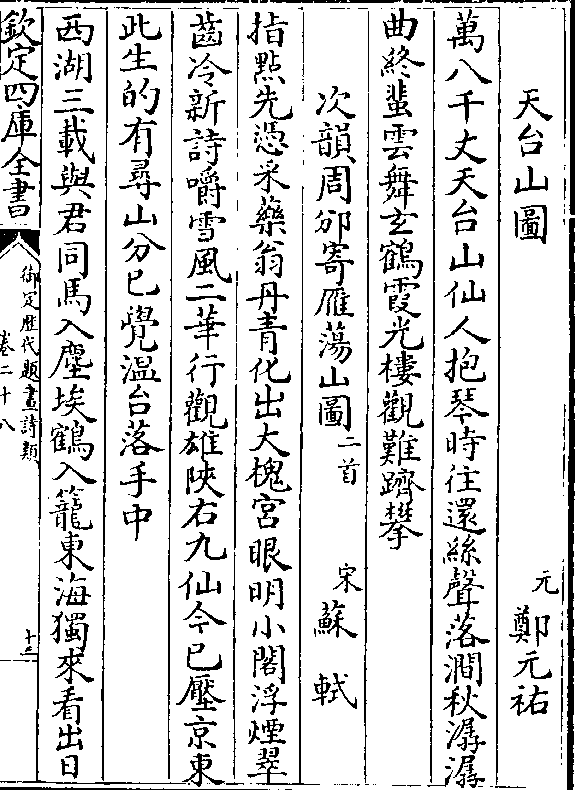 天台山圖
元鄭元祐
萬八千丈天台山仙人抱琴時往還絲聲落澗秋潺潺
曲終蜚雲舞玄鶴霞光樓觀難躋攀
次韻周邠寄雁蕩山圖二首
宋蘇軾
指點先憑采藥翁丹青化出大槐宮眼明小閣浮煙翠
齒冷新詩嚼雪風二華行觀雄陜右九仙今已壓京東
此生的有尋山分已覺温台落手中
西湖三載與君同馬入塵埃鶴入籠東海獨來看出日
欽定四庫全書
御定歷代題畫詩類
卷二十八
十三